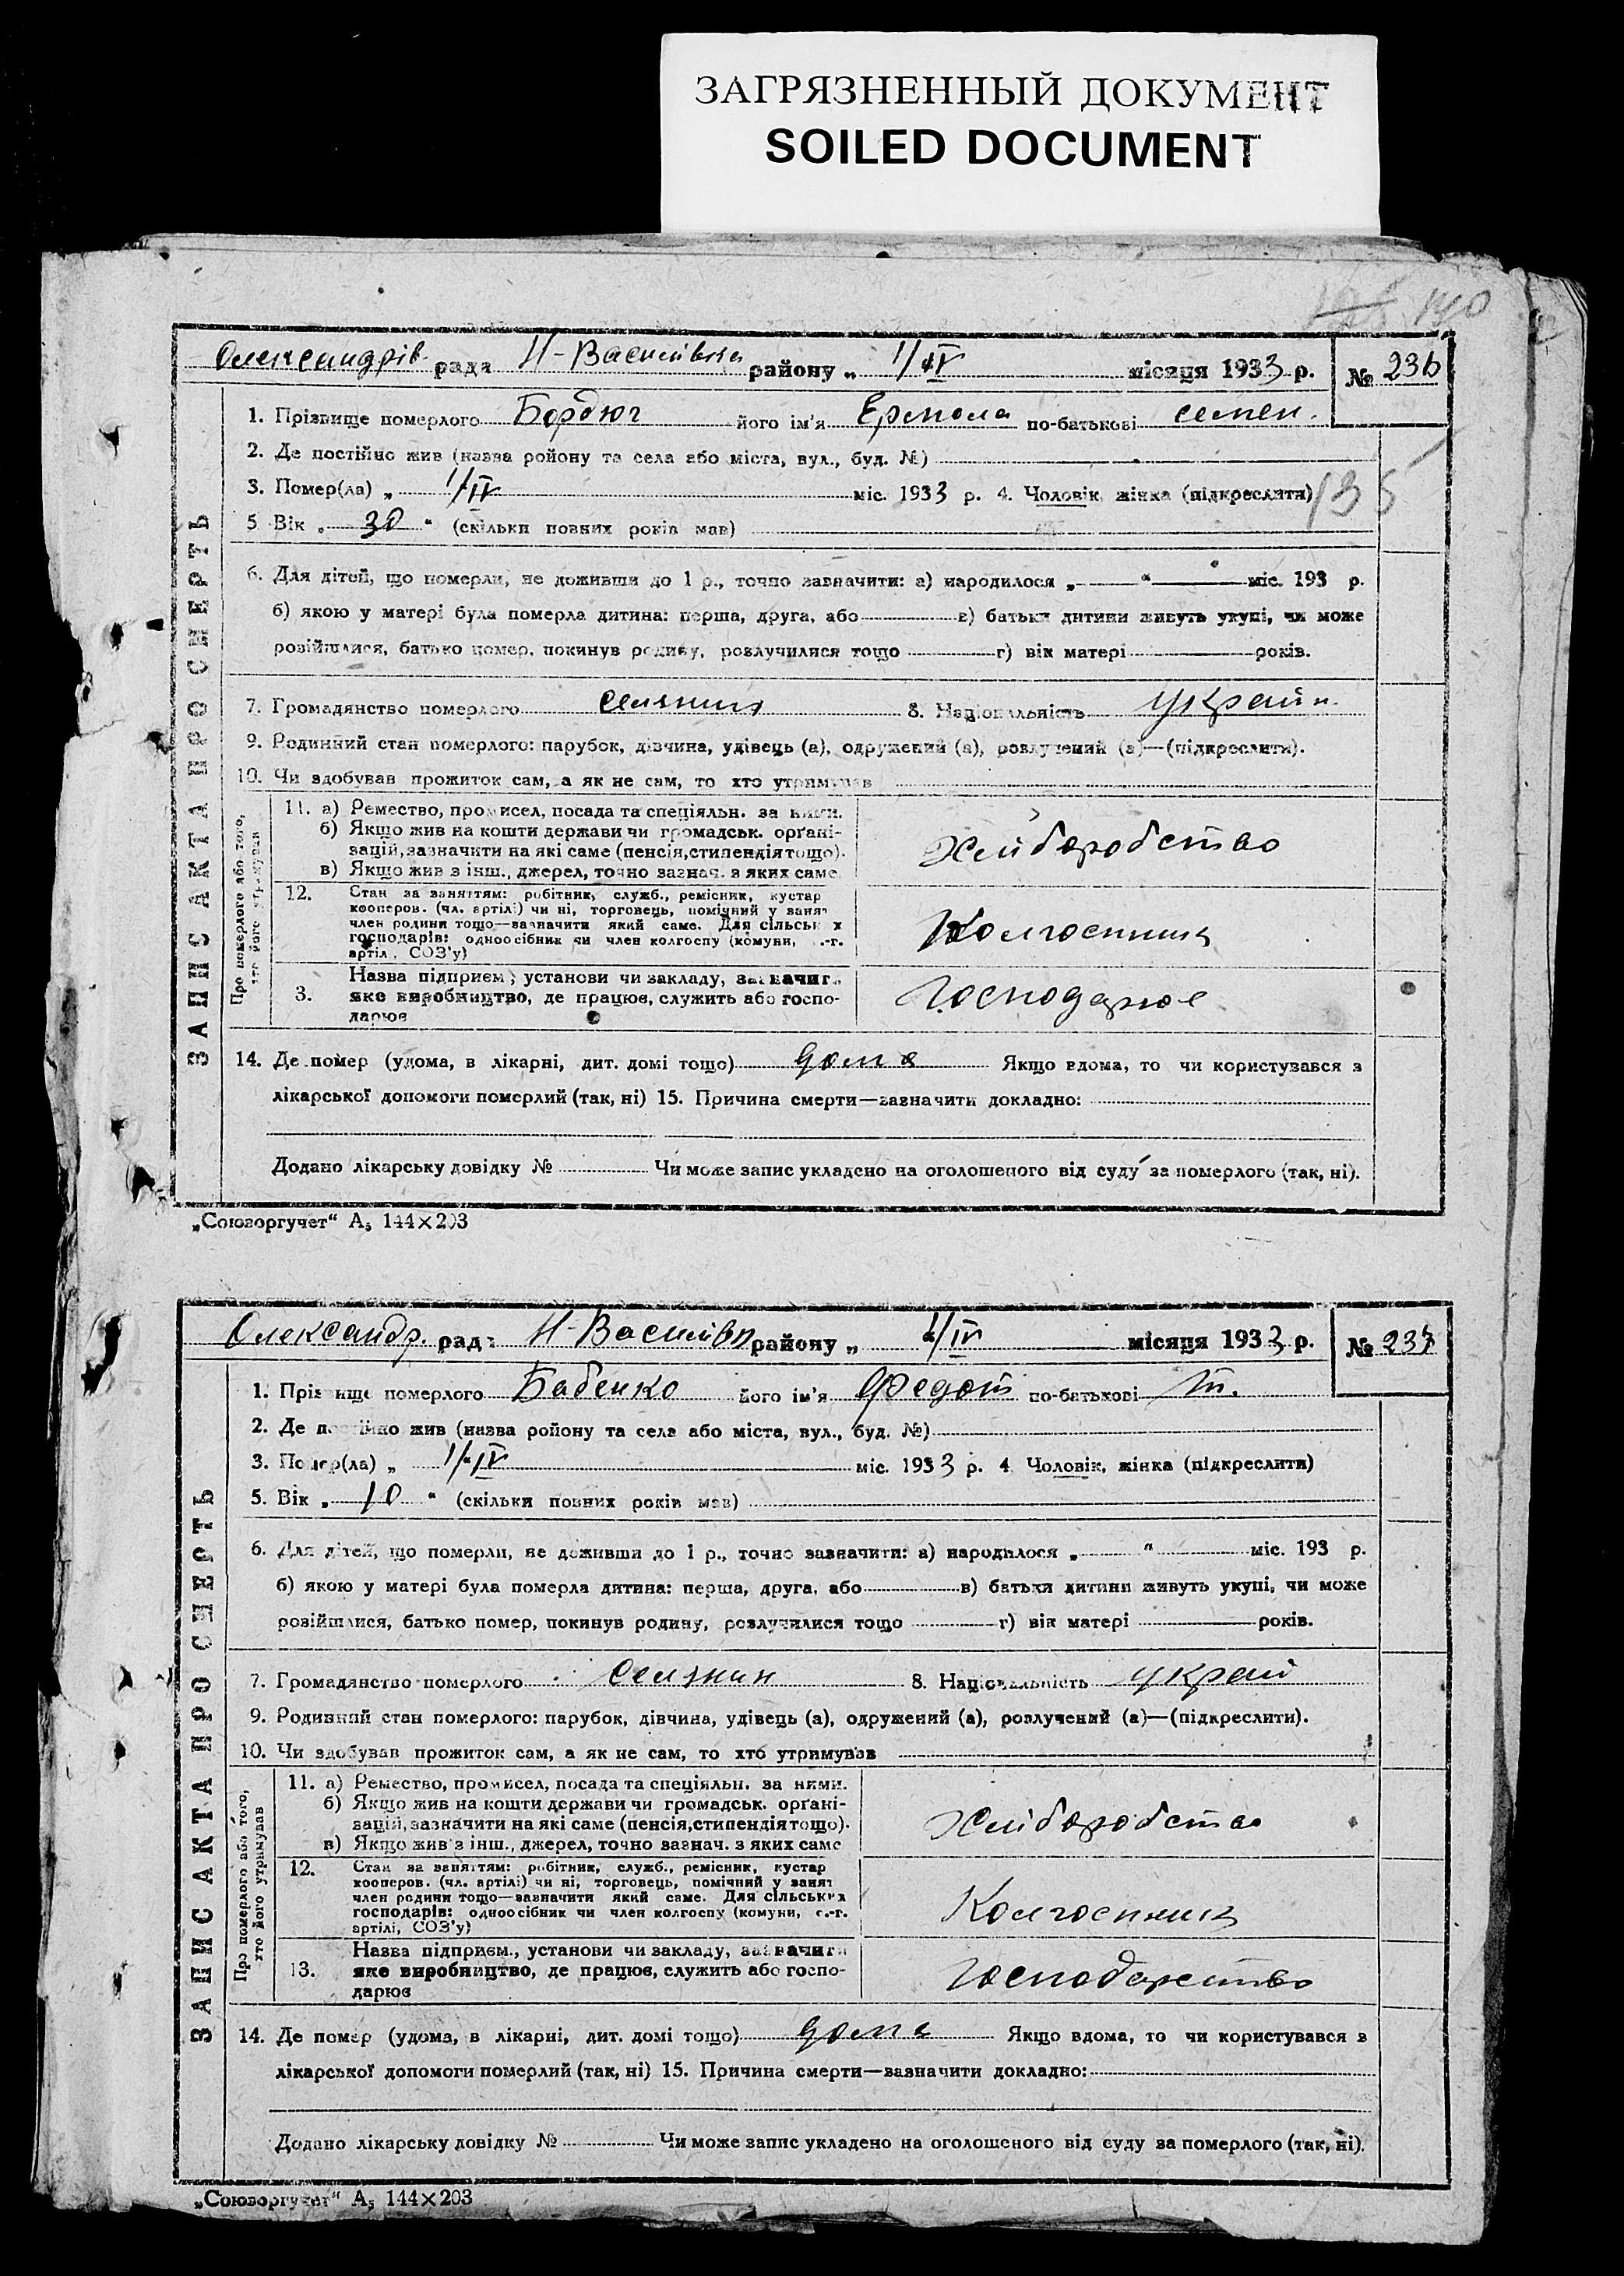 ЗАГРЯЗНЕННЫЙ ДОКУМЕНТ
SOILED DOCUMENT
140
Олександрів. рада Н-Василівка району „ 1/IV місяця 1933 р. № 236
1. Прізвище померлого Бордюг його ім'я Ермола по-батькові семен.
2. Де постійно жив (назва ройону та села або міста, вул., буд. №)
3. Помер(ла) „ 1/IV міс. 1933 р. 4. Чоловік, жінка (підкреслити)
135
5 Вік „ 30 “ (скільки повних років мав)
6. Для дітей, що померли, не доживши до 1 р., точно зазначити: а) народилося „ “ міс. 193 р.
б) якою у матері була померла дитина: перша, друга, або в) батьки дитини живуть укупі, чи може
розійшлися, батько помер, покинув родину, розлучилися тощо г) вік матері років.
7. Громадянство померлого селянин 8. Національність україн.
9. Родинний стан померлого: парубок, дівчина, удівець (а), одружений (а), розлучений (а)—(підкреслити).
10. Чи здобував прожиток сам, а як не сам, то хто утримував
11. а) Ремество, промисел, посада та спеціяльн. за ними.
б) Якщо жив на кошти держави чи громадськ. орґані-
зацій, зазначити на які саме (пенсія, стипендія тощо).
в) Якщо жив з інш., джерел, точно зазнач. з яких саме
Хліборобство
12. Стан за заняттям: робітник, служб., ремісник, кустар
кооперов. (чл. артілі) чи ні, торговець, помічний у занят
член родини тощо—зазначити який саме. Для сільськ х
господарів: одноосібник чи член колгоспу (комуни, .-г.
артіл , СОЗ'у)
Колгоспник
3. Назва підприєм , установи чи закладу, зазначити
яке виробництво, де працює, служить або госпо-
дарює
Господарює
14. Де помер (удома, в лікарні, дит. домі тощо) дома Якщо вдома, то чи користувався з
лікарської допомоги померлий (так, ні) 15. Причина смерти—зазначити докладно:
Додано лікарську довідку № Чи може запис укладено на оголошеного від суду за померлого (так, ні).
ЗАПИС АКТА ПРО СМЕРТЬ
Про померлого або того,
хто його утримував
„Союзоргучет“ А5 144×203
Олександр. рада Н-Василівк району „ 1/IV місяця 1933 р. № 237
1. Прізвище померлого Бабенко його ім'я Федот по-батькові Т.
2. Де постійно жив (назва ройону та села або міста, вул., буд. №)
3. Помер(ла) „ 1/IV міс. 1933 р. 4 Чоловік, жінка (підкреслити)
5. Вік „ 10 “ (скільки повних років мав)
6. Для дітей, що померли, не доживши до 1 р., точно зазначити: а) народилося „ “ міс. 193 р.
б) якою у матері була померла дитина: перша, друга, або в) батьки дитини живуть укупі, чи може
розійшлися, батько помер, покинув родину, розлучилися тощо г) вік матері років.
7. Громадянство померлого Селянин 8. Національність украй
9. Родинний стан померлого: парубок, дівчина, удівець (а), одружений (а), розлучений (а)—(підкреслити).
10. Чи здобував прожиток сам, а як не сам, то хто утримував
11. а) Ремество, промисел, посада та спеціяльн. за ними.
б) Якщо жив на кошти держави чи громадськ. орґані-
зацій, зазначити на які саме (пенсія, стипендія тощо).
в) Якщо жив з інш., джерел, точно зазнач. з яких саме
Хліборобство
12. Стан за заняттям: робітник, служб., ремісник, кустар
кооперов. (чл. артілі) чи ні, торговець, помічний у занят
член родини тощо—зазначити який саме. Для сільських
господарів: одноосібник чи член колгоспу (комуни, с.-г.
артілі, СОЗ'у)
Колгоспник
13. Назва підприєм., установи чи закладу, зазначити
яке виробництво, де працює, служить або госпо-
дарює
Господарство
14. Де помер (удома, в лікарні, дит. домі тощо) дома Якщо вдома, то чи користувався з
лікарської допомоги померлий (так, ні) 15. Причина смерти—зазначити докладно:
Додано лікарську довідку № Чи може запис укладено на оголошеного від суду за померлого (так, ні).
ЗАПИС АКТА ПРО СМЕРТЬ
Про померлого або того,
хто його утримував
„Союзоргучет“ А5 144×203